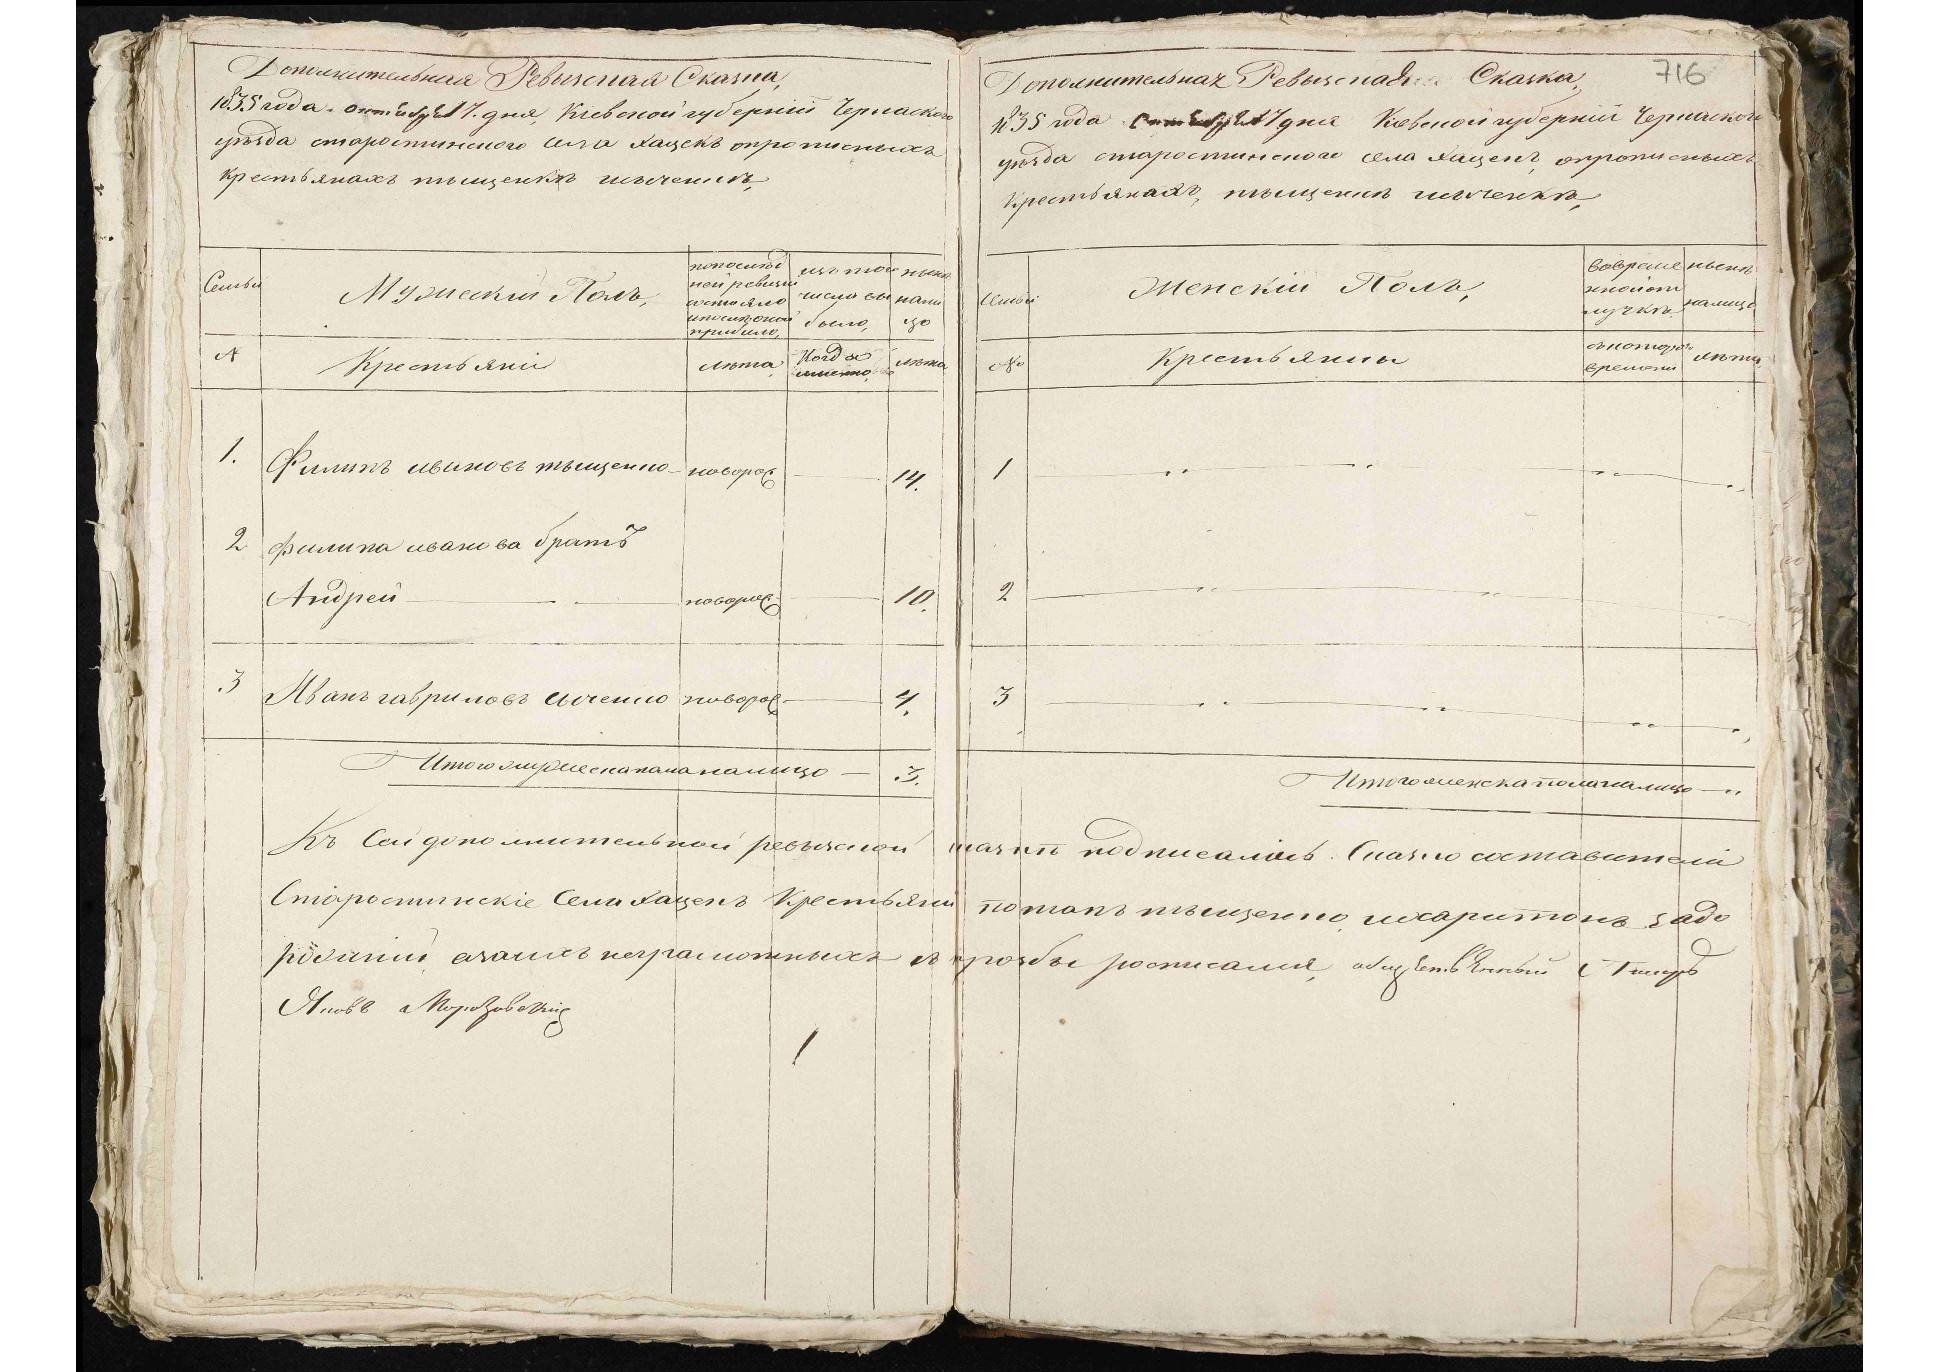 Дополнительная Ревызская Сказка,
1835 года октября 17. дня, Кіевской губерніи Черкаского
уѣзда старостинского села Хацекъ опрописныхъ
крестьянахъ тыщенкѣ ильченкѣ,
Семьи
Мужескій Полъ,
попослѣд
ней ревизіи
состояло
ипослѣоной
прибыло,
изъ того
числа вы
было,
нынѣ
нали
цо
№
Крестьяні
лѣта,
Когда
именно,
лѣта
1. Филипъ ивановъ тыщенко новорож 14.
2 филипа иванова братъ
Андрей новорож 10.
3 Иванъ гавриловъ ильченко новорож 4.
Итого мужеска пола налицо — 3.
716
Дополнительная Ревызская Сказка,
1835 года октября 17 дня Кіевской губерніи Черкаского
уѣзда старостинского села Хацекъ, опрописныхъ
Крестьянахъ, тыщенкѣ ильченкѣ,
Семьи
Женскій Полъ,
вовреме
нной от
лучкѣ
нынѣ
налицо
№
Крестьянки
скотораго
времени
лѣта,
1
2
3
Итого женска пола налицо — "
Къ Сей дополнительной ревызской сказкѣ подписались. Сказко составители
Старостинскіе Села Хацекъ Крестьяни потапъ тыщенко, ихаритонъ задо
рожній, азаихъ неграмотныхъ ихъ прозбы росписался, общественный Писарь
Яковъ Морозовскій